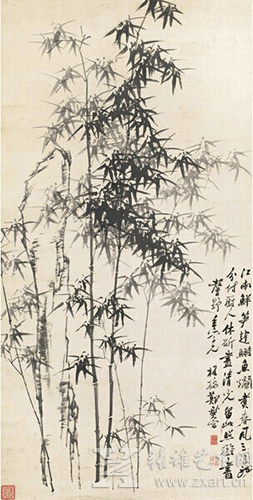 江南鮮笋趁鰣魚爛煮春風三月初
分付厨人休斫盡清光留此照攤書
板橋鄭燮
张雄艺术网
www.zxart.cn